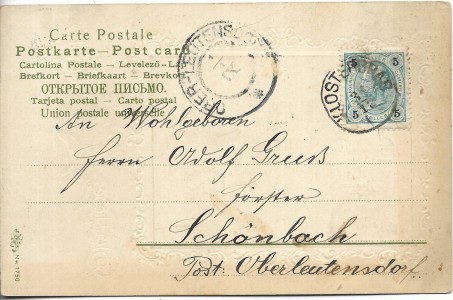 Carte Postale
Postkarte – Post card
Cartolina Postale – Levelező-La
Brefkort – Briefkaart – Brevkor
ОТКРЫТОЕ ПИСЬМО.
Tarjeta postal – Carto postal
Union postale universelle
OBER-LEUTENSDORF
KLOST
5 5
5 5
An Wohlgeboren
Herrn Adolf
Förster
Schönbach
Post: Oberleutensdorf